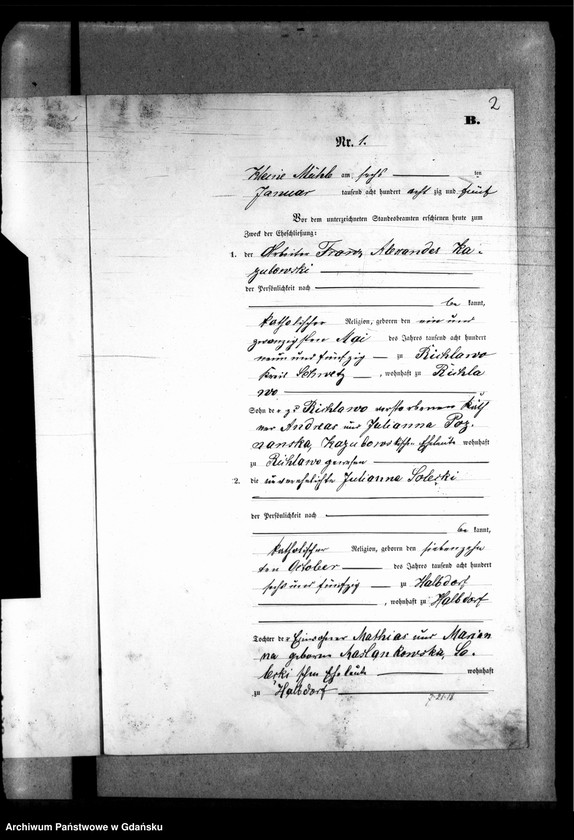 2
B.
Nr. 1.
Kleine Mühle am sechs ten
Januar tausend acht hundert acht zig und fünf
Vor dem unterzeichneten Standesbeamten erschienen heute zum
Zweck der Eheschließung:
1. der Arbeiter Franz Alexander Ka-
zubowski
der Persönlichkeit nach
be kannt,
katholischer Religion, geboren den ein und
zwanzigsten Mai des Jahres tausend acht hundert
neun und fünfzig zu Richlawo
Kreis Schwetz, wohnhaft zu Richla
wo
Sohn der zu Richlawo verstorbenen
Andreas und Julianna Poz
nanska, Kazubowskischen Eheleute wohnhaft
zu Richlawo gewesen
2. die unverehelichte Julianna Solecki
der Persönlichkeit nach
be kannt,
katholischer Religion, geboren den siebenzehn
ten October des Jahres tausend acht hundert
sechs und fünfzig zu Halbdorf
, wohnhaft zu Halbdorf
Tochter der Einwohner Mathias und Marian
na geborne Raslankowska, So-
lecki schen Eheleute wohnhaft
zu Halbdorf
Archiwum Państwowe w Gdańsku